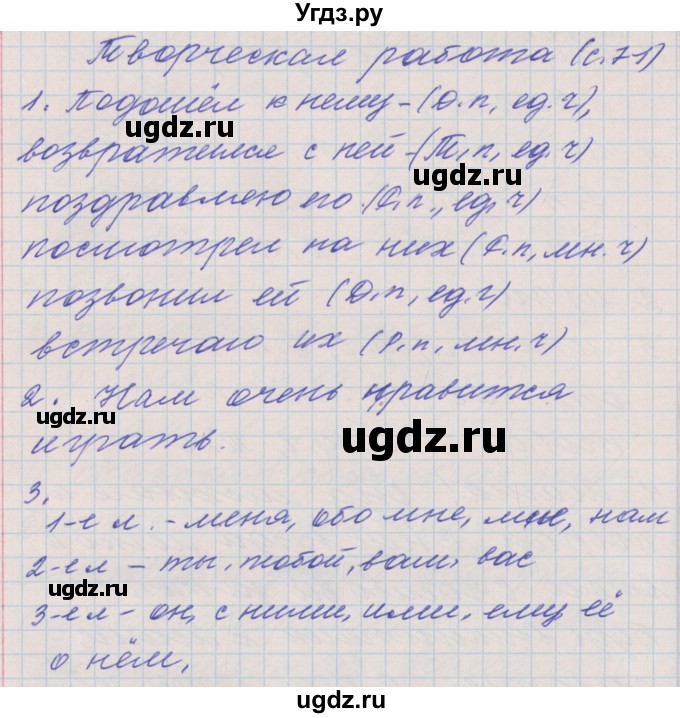 Угдз.ру
Творческая работа (с.71)
1. Подошёл к нему - (Д.п, ед.ч),
ugdz.ru
возвратился с ней - (Т.п, ед.ч)
ugdz.ru
поздравляю его (Р.п., ед.ч)
посмотрел на них (Р.п, мн.ч)
позвонил ей (Д.п, ед.ч)
встречаю их (Р.п, мн.ч)
2. Нам очень нравится
ugdz.ru
играть.
ugdz.ru
3.
1-е л. - меня, обо мне, мне, нам
2-е л - ты, тобой, вам, вас
ugdz.ru
3-е л - он, с ними, ими, ему, её
о нём,
ugdz.ru
ugdz.ru